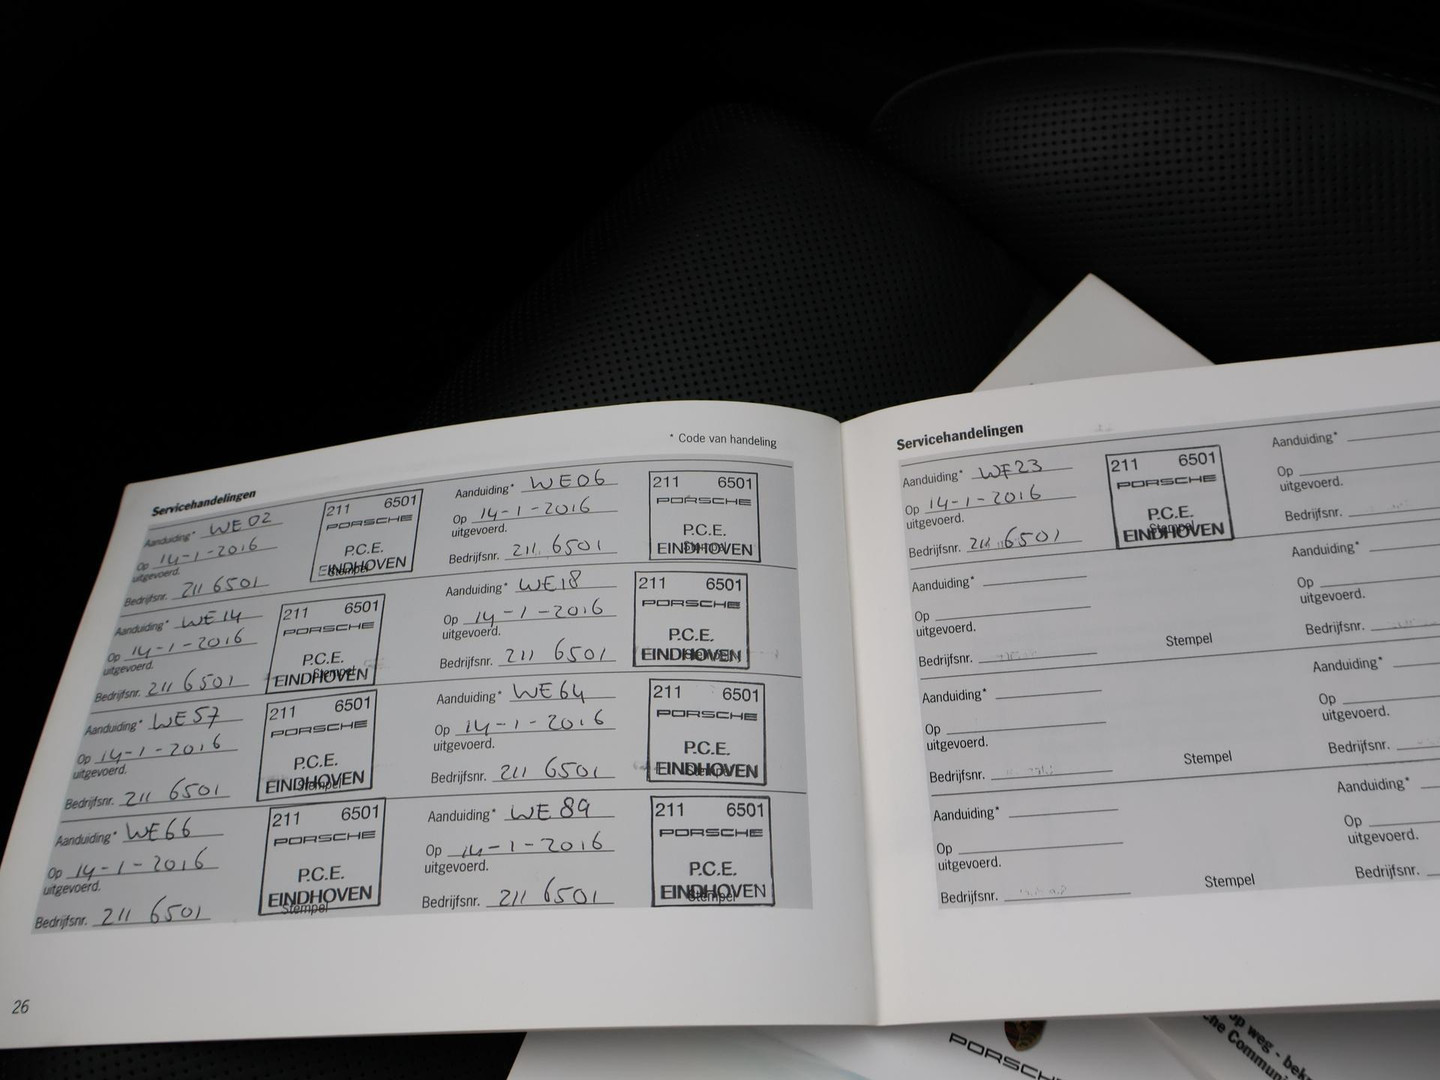 * Code van handeling
Servicehandelingen
Aanduiding* WE02
Op 14-1-2016
uitgevoerd.
Bedrijfsnr. 211 6501
211 6501
PORSCHE
P.C.E.
EINDHOVEN
Stempel
Aanduiding* WE06
Op 14-1-2016
uitgevoerd.
Bedrijfsnr. 211 6501
211 6501
PORSCHE
P.C.E.
EINDHOVEN
Aanduiding* WE14
Op 14-1-2016
uitgevoerd.
Bedrijfsnr. 211 6501
211 6501
PORSCHE
P.C.E.
EINDHOVEN
Stempel
Aanduiding* WE18
Op 14-1-2016
uitgevoerd.
Bedrijfsnr. 211 6501
211 6501
PORSCHE
P.C.E.
EINDHOVEN
Aanduiding* WE57
Op 14-1-2016
uitgevoerd.
Bedrijfsnr. 211 6501
211 6501
PORSCHE
P.C.E.
EINDHOVEN
Stempel
Aanduiding* WE64
Op 14-1-2016
uitgevoerd.
Bedrijfsnr. 211 6501
211 6501
PORSCHE
P.C.E.
EINDHOVEN
Stempel
Aanduiding* WE66
Op 14-1-2016
uitgevoerd.
Bedrijfsnr. 211 6501
211 6501
PORSCHE
P.C.E.
EINDHOVEN
Stempel
Aanduiding* WE89
Op 14-1-2016
uitgevoerd.
Bedrijfsnr. 211 6501
211 6501
PORSCHE
P.C.E.
EINDHOVEN
Stempel
26
Servicehandelingen
Aanduiding* WF23
Op 14-1-2016
uitgevoerd.
Bedrijfsnr. 211 6501
211 6501
PORSCHE
P.C.E.
Stempel
EINDHOVEN
Aanduiding*
Op
uitgevoerd.
Bedrijfsnr.
Aanduiding*
Op
uitgevoerd.
Bedrijfsnr.
Stempel
Aanduiding*
Op
uitgevoerd.
Bedrijfsnr.
Aanduiding*
Op
uitgevoerd.
Bedrijfsnr.
Stempel
Aanduiding*
Op
uitgevoerd.
Bedrijfsnr.
Aanduiding*
Op
uitgevoerd.
Bedrijfsnr.
Stempel
Aanduiding*
Op
uitgevoerd.
Bedrijfsnr.
PORSCHE
op weg - bek
che Commun